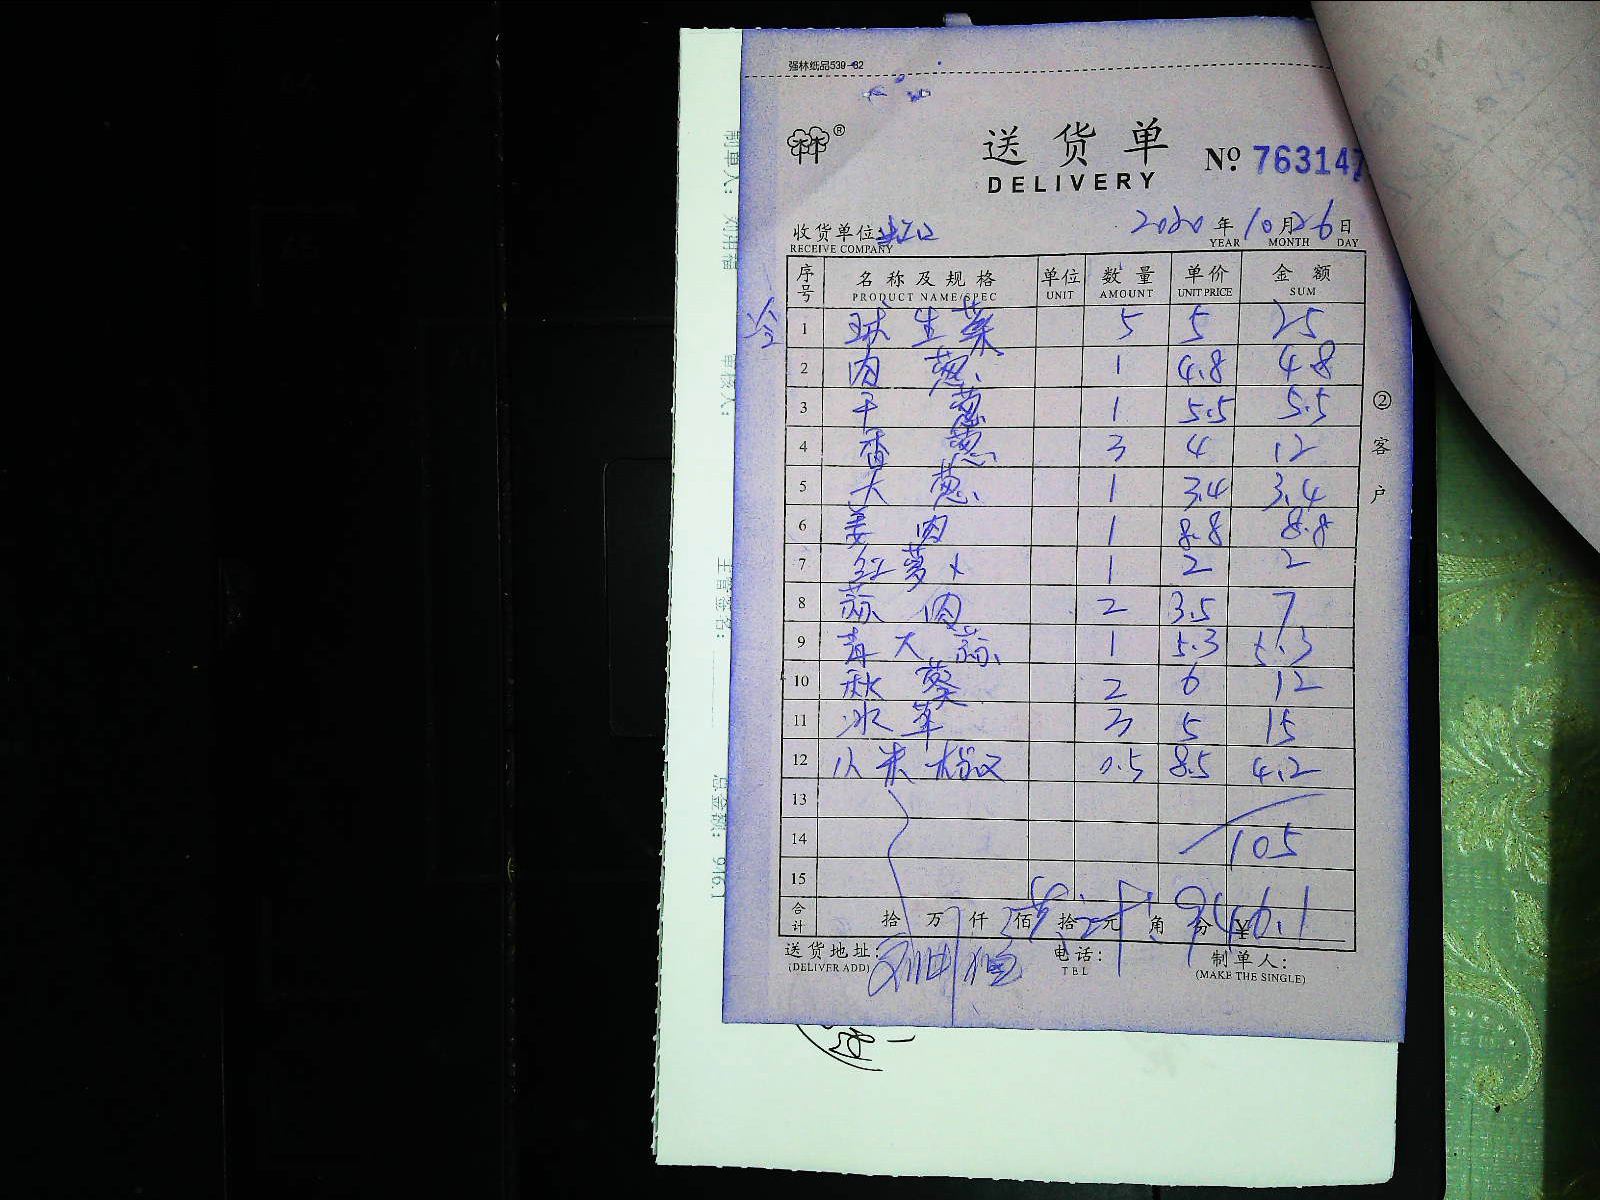 强林纸品539-32
送货单
DELIVERY
No. 763147
收货单位:
RECEIVE COMPANY
2020年10月26日
YEAR MONTH DAY
序号 名称及规格 单位 数量 单价 金额
PRODUCT NAME/SPEC UNIT AMOUNT UNIT PRICE SUM
1 球生菜 5 5 25
2 肉葱 1 4.8 4.8
3 干葱 1 5.5 5.5
4 香葱 3 4 12
5 大葱 1 3.4 3.4
6 姜肉 1 8.8 8.8
7 红萝卜 1 2 2
8 蒜肉 2 3.5 7
9 青大蒜 1 5.3 5.3
10 秋葵 2 6 12
11 冰草 3 5 15
12 小米椒 0.5 8.5 4.2
13
14 105
15
合计 拾 万 仟 佰 拾 元 角 分
送货地址:
(DELIVER ADD)
电话:
TEL
制单人:
(MAKE THE SINGLE)
②客户
制单人:
审核人:
主管签名:
总金额: 916.1